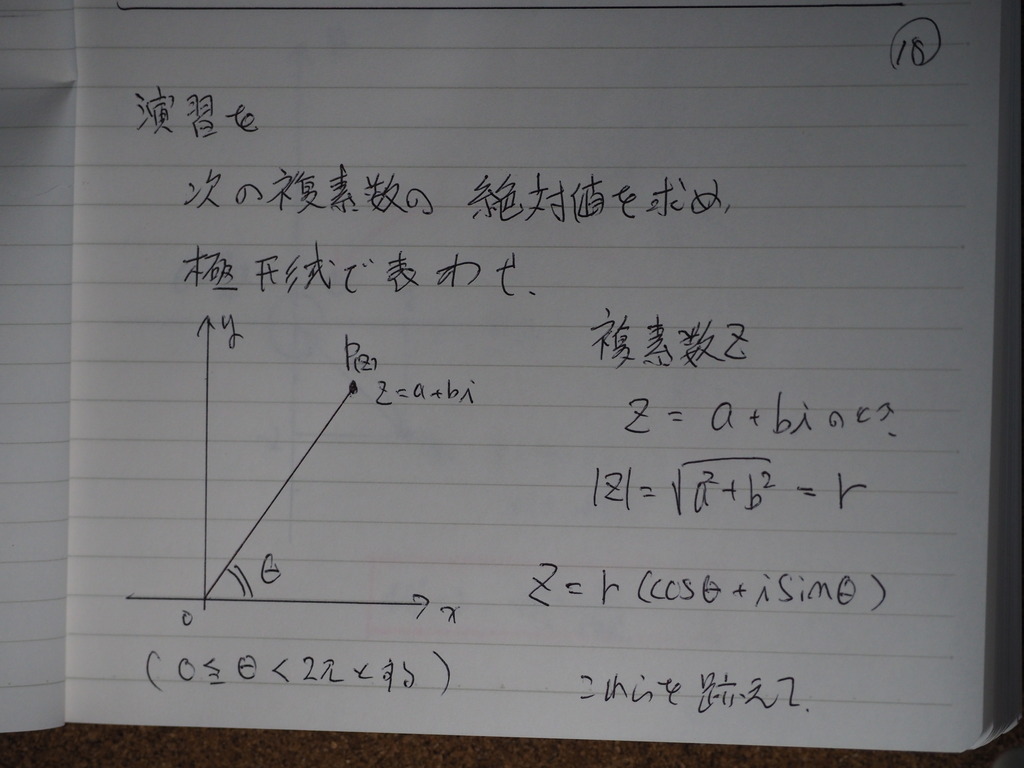 ⑱
演習を
次の複素数の 絶対値を求め,
極形式で表わせ.
y
P(z)
z=a+bi
θ
0
x
(0≦θ<2πとする)
複素数z
z=a+biのとき.
|z|=√a²+b²=r
z=r(cosθ+isinθ)
これらを踏えて.